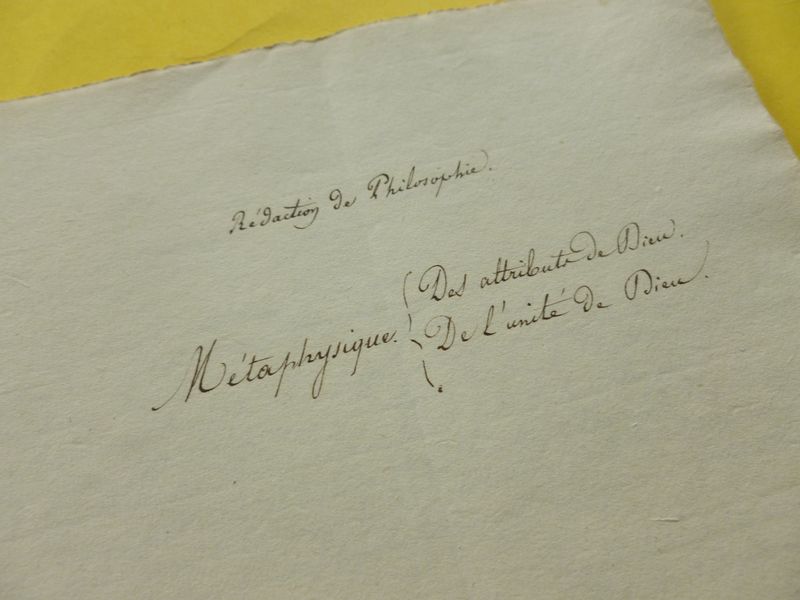 Rédaction de Philosophie.
Des attributs de Dieu.
Métaphysique.
De l'unité de Dieu.